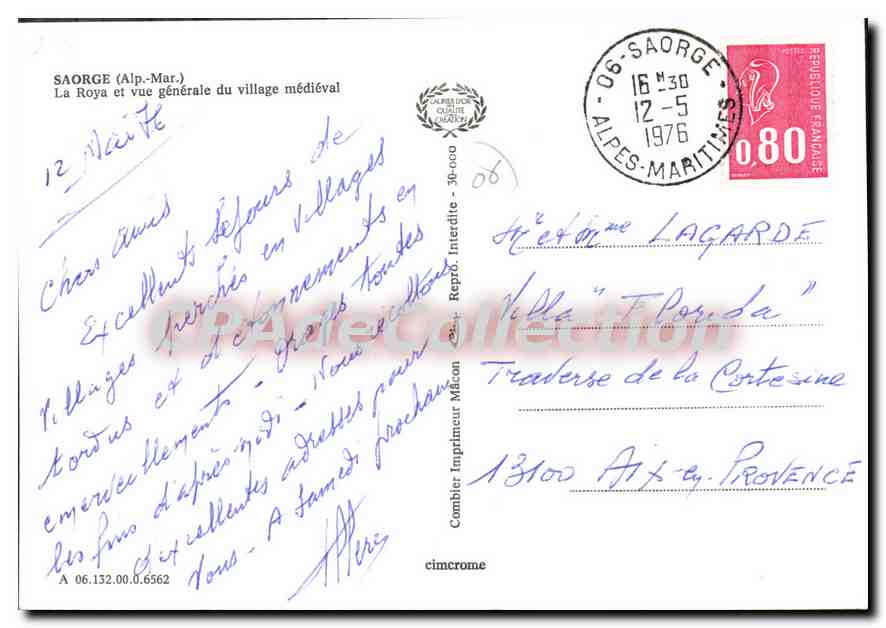 SAORGE (Alp.-Mar.)
La Roya et vue générale du village médiéval
LAURIER D'OR
DE
QUALITÉ
CRÉATION
12 Mai 76
Chers amis
Excellents séjours de
Villages perchés en Villages
tordus et d'étonnements en
emerveillements - Orages toutes
les fins d'après-midi - Nous récoltons
d'excellentes adresses pour
Vous - A Samedi prochain
A 06.132.00.0.6562
Combier Imprimeur Mâcon
Repro. Interdite - 30-000
cimcrome
06
06-SAORGE
16 H 30
12-5
1976
ALPES-MARITIMES
POSTES
RÉPUBLIQUE FRANÇAISE
0,80
Mr et Mme LAGARDE
Villa "Florida"
Traverse de la Cortesine
13100 Aix-en-PROVENCE
CPAdeCollection